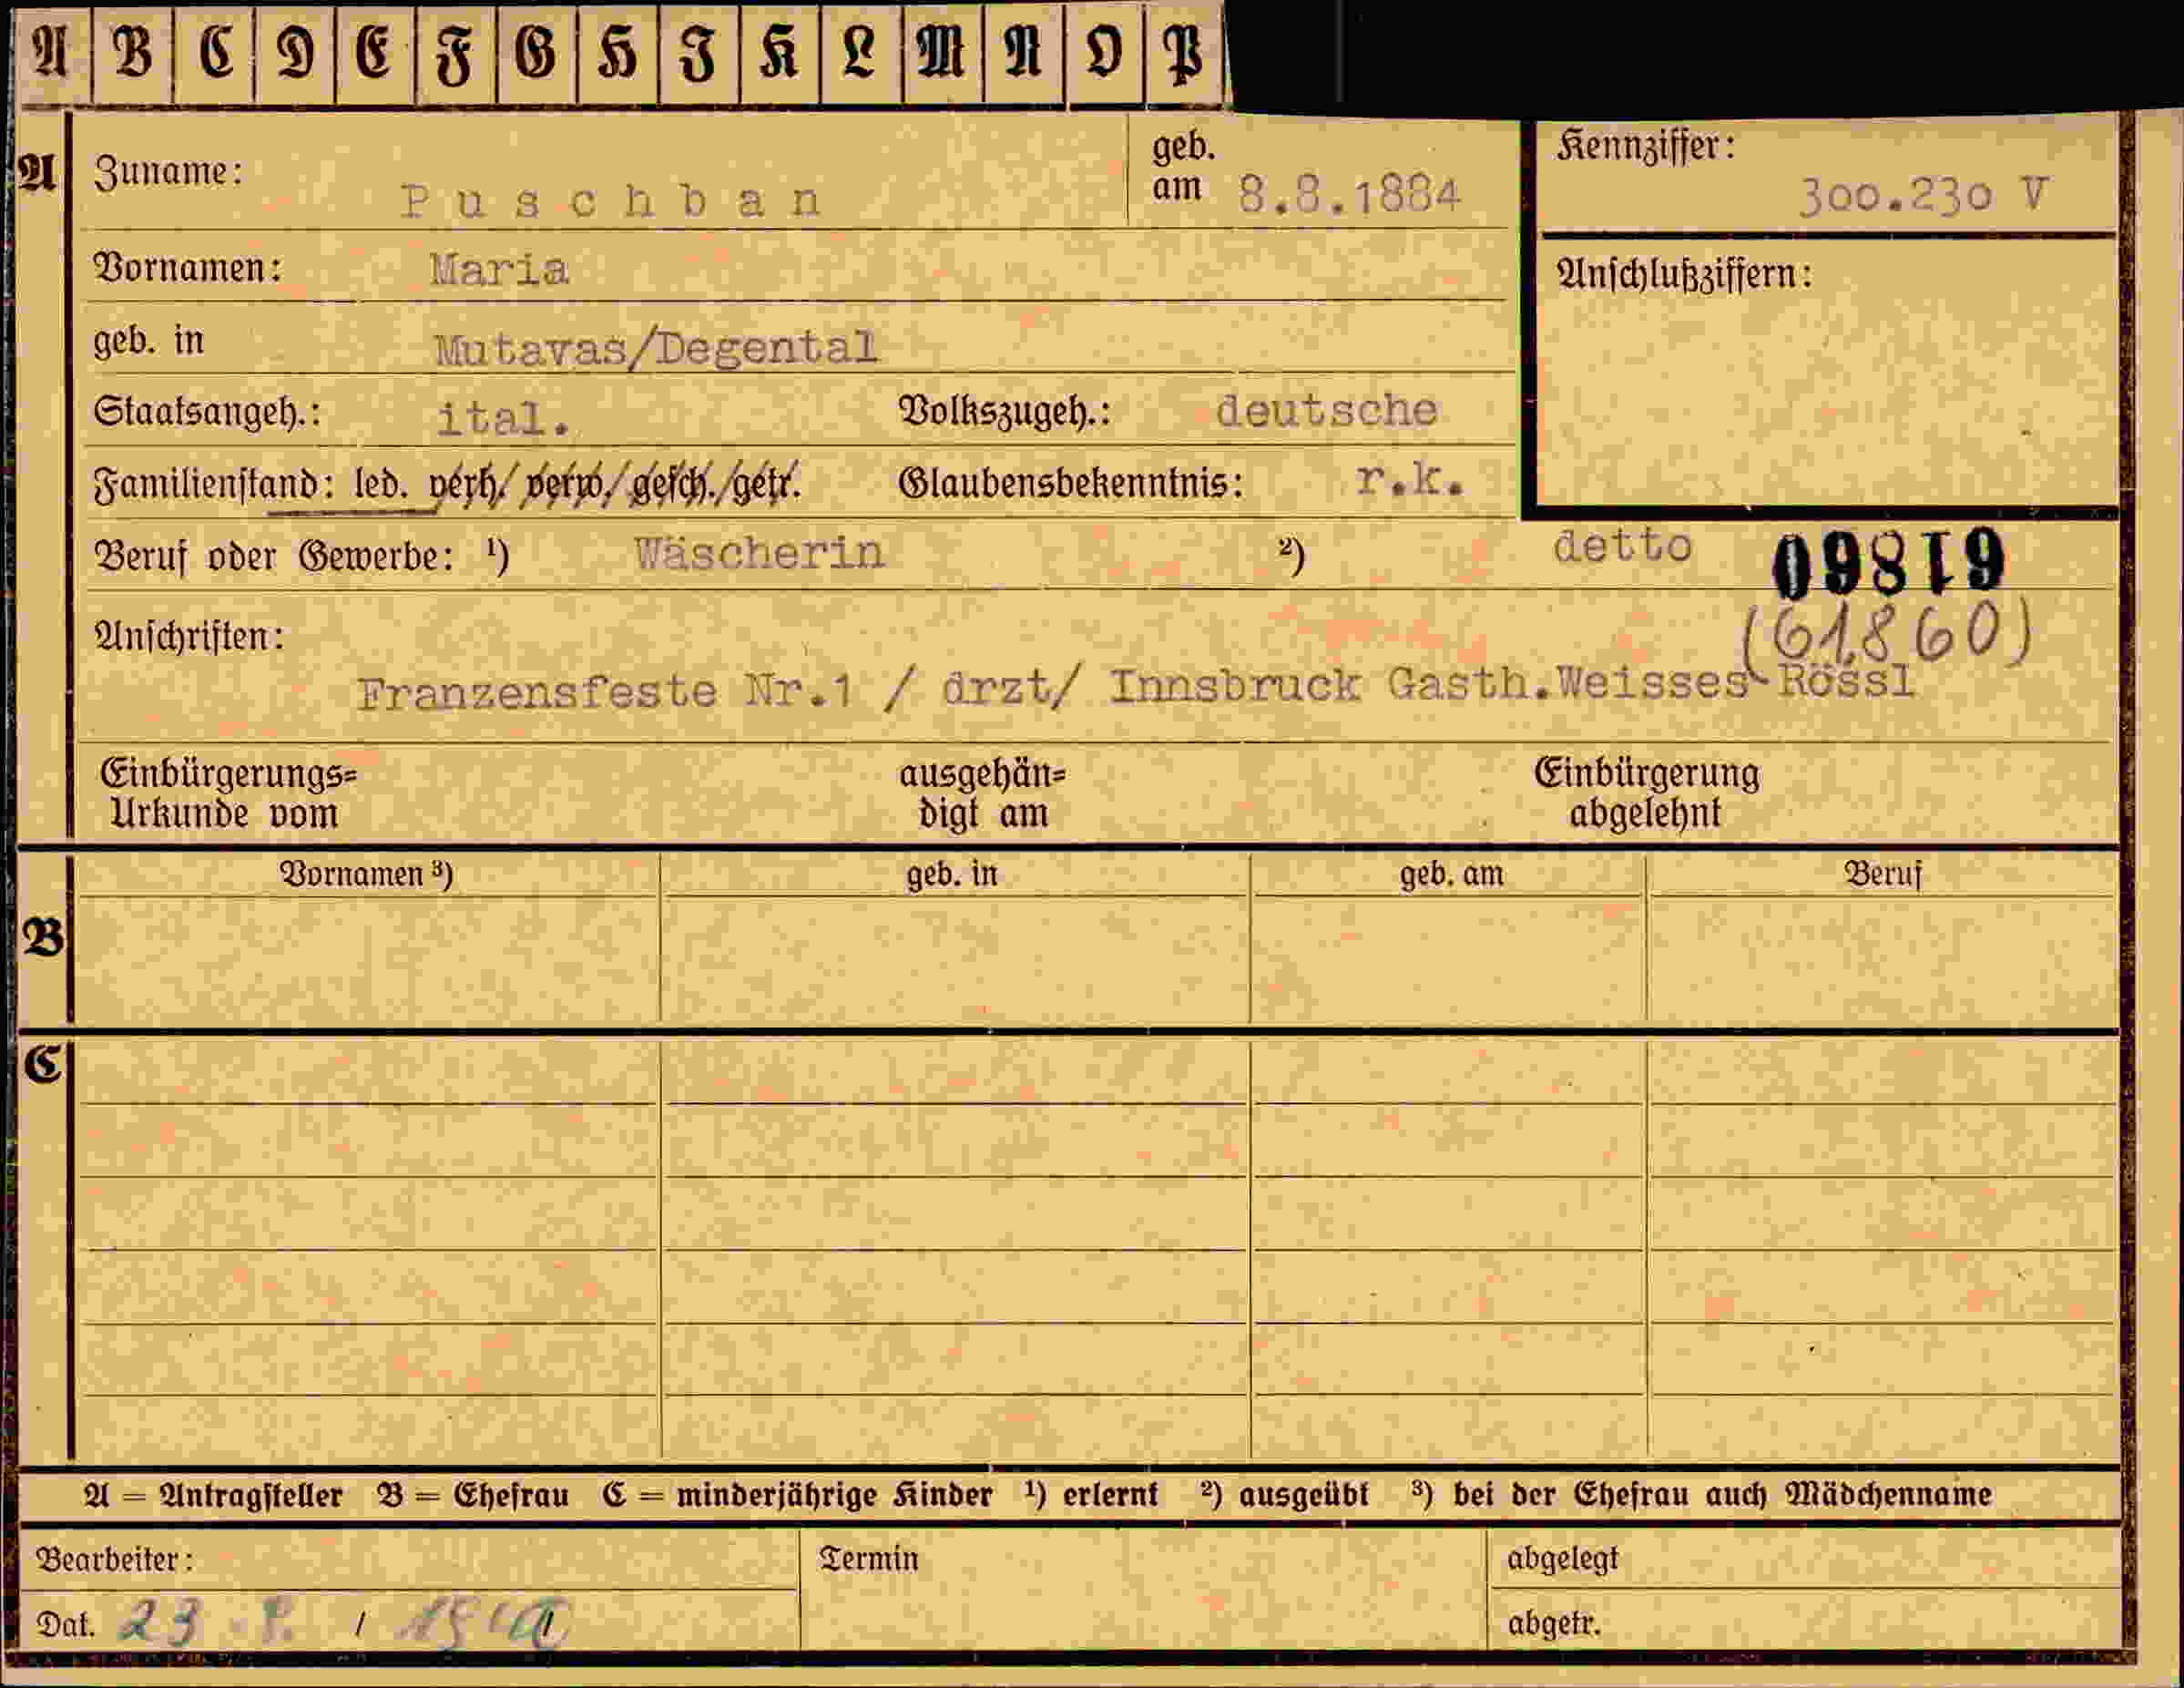 A B C D E F G H I K L M N O P
A
Zuname: Puschban
geb. am 8.8.1884
Kennziffer: 300.230 V
Vornamen: Maria
Anschlußziffern:
geb. in Mutavas/Degental
Staatsangeh.: ital. Volkszugeh.: deutsche
Familienstand: led. verh/ verw./ gesch./getr. Glaubensbekenntnis: r.k.
Beruf oder Gewerbe: ¹) Wäscherin ²) detto 61860
(61860)
Anschriften:
Franzensfeste Nr.1 / drzt/ Innsbruck Gasth.Weisses Rössl
Einbürgerungs= ausgehän= Einbürgerung
Urkunde vom digt am abgelehnt
B
Vornamen ³) geb. in geb. am Beruf
C
A = Antragsteller B = Ehefrau C = minderjährige Kinder ¹) erlernt ²) ausgeübt ³) bei der Ehefrau auch Mädchenname
Bearbeiter: Termin abgelegt
Dat. 23. / abgetr.